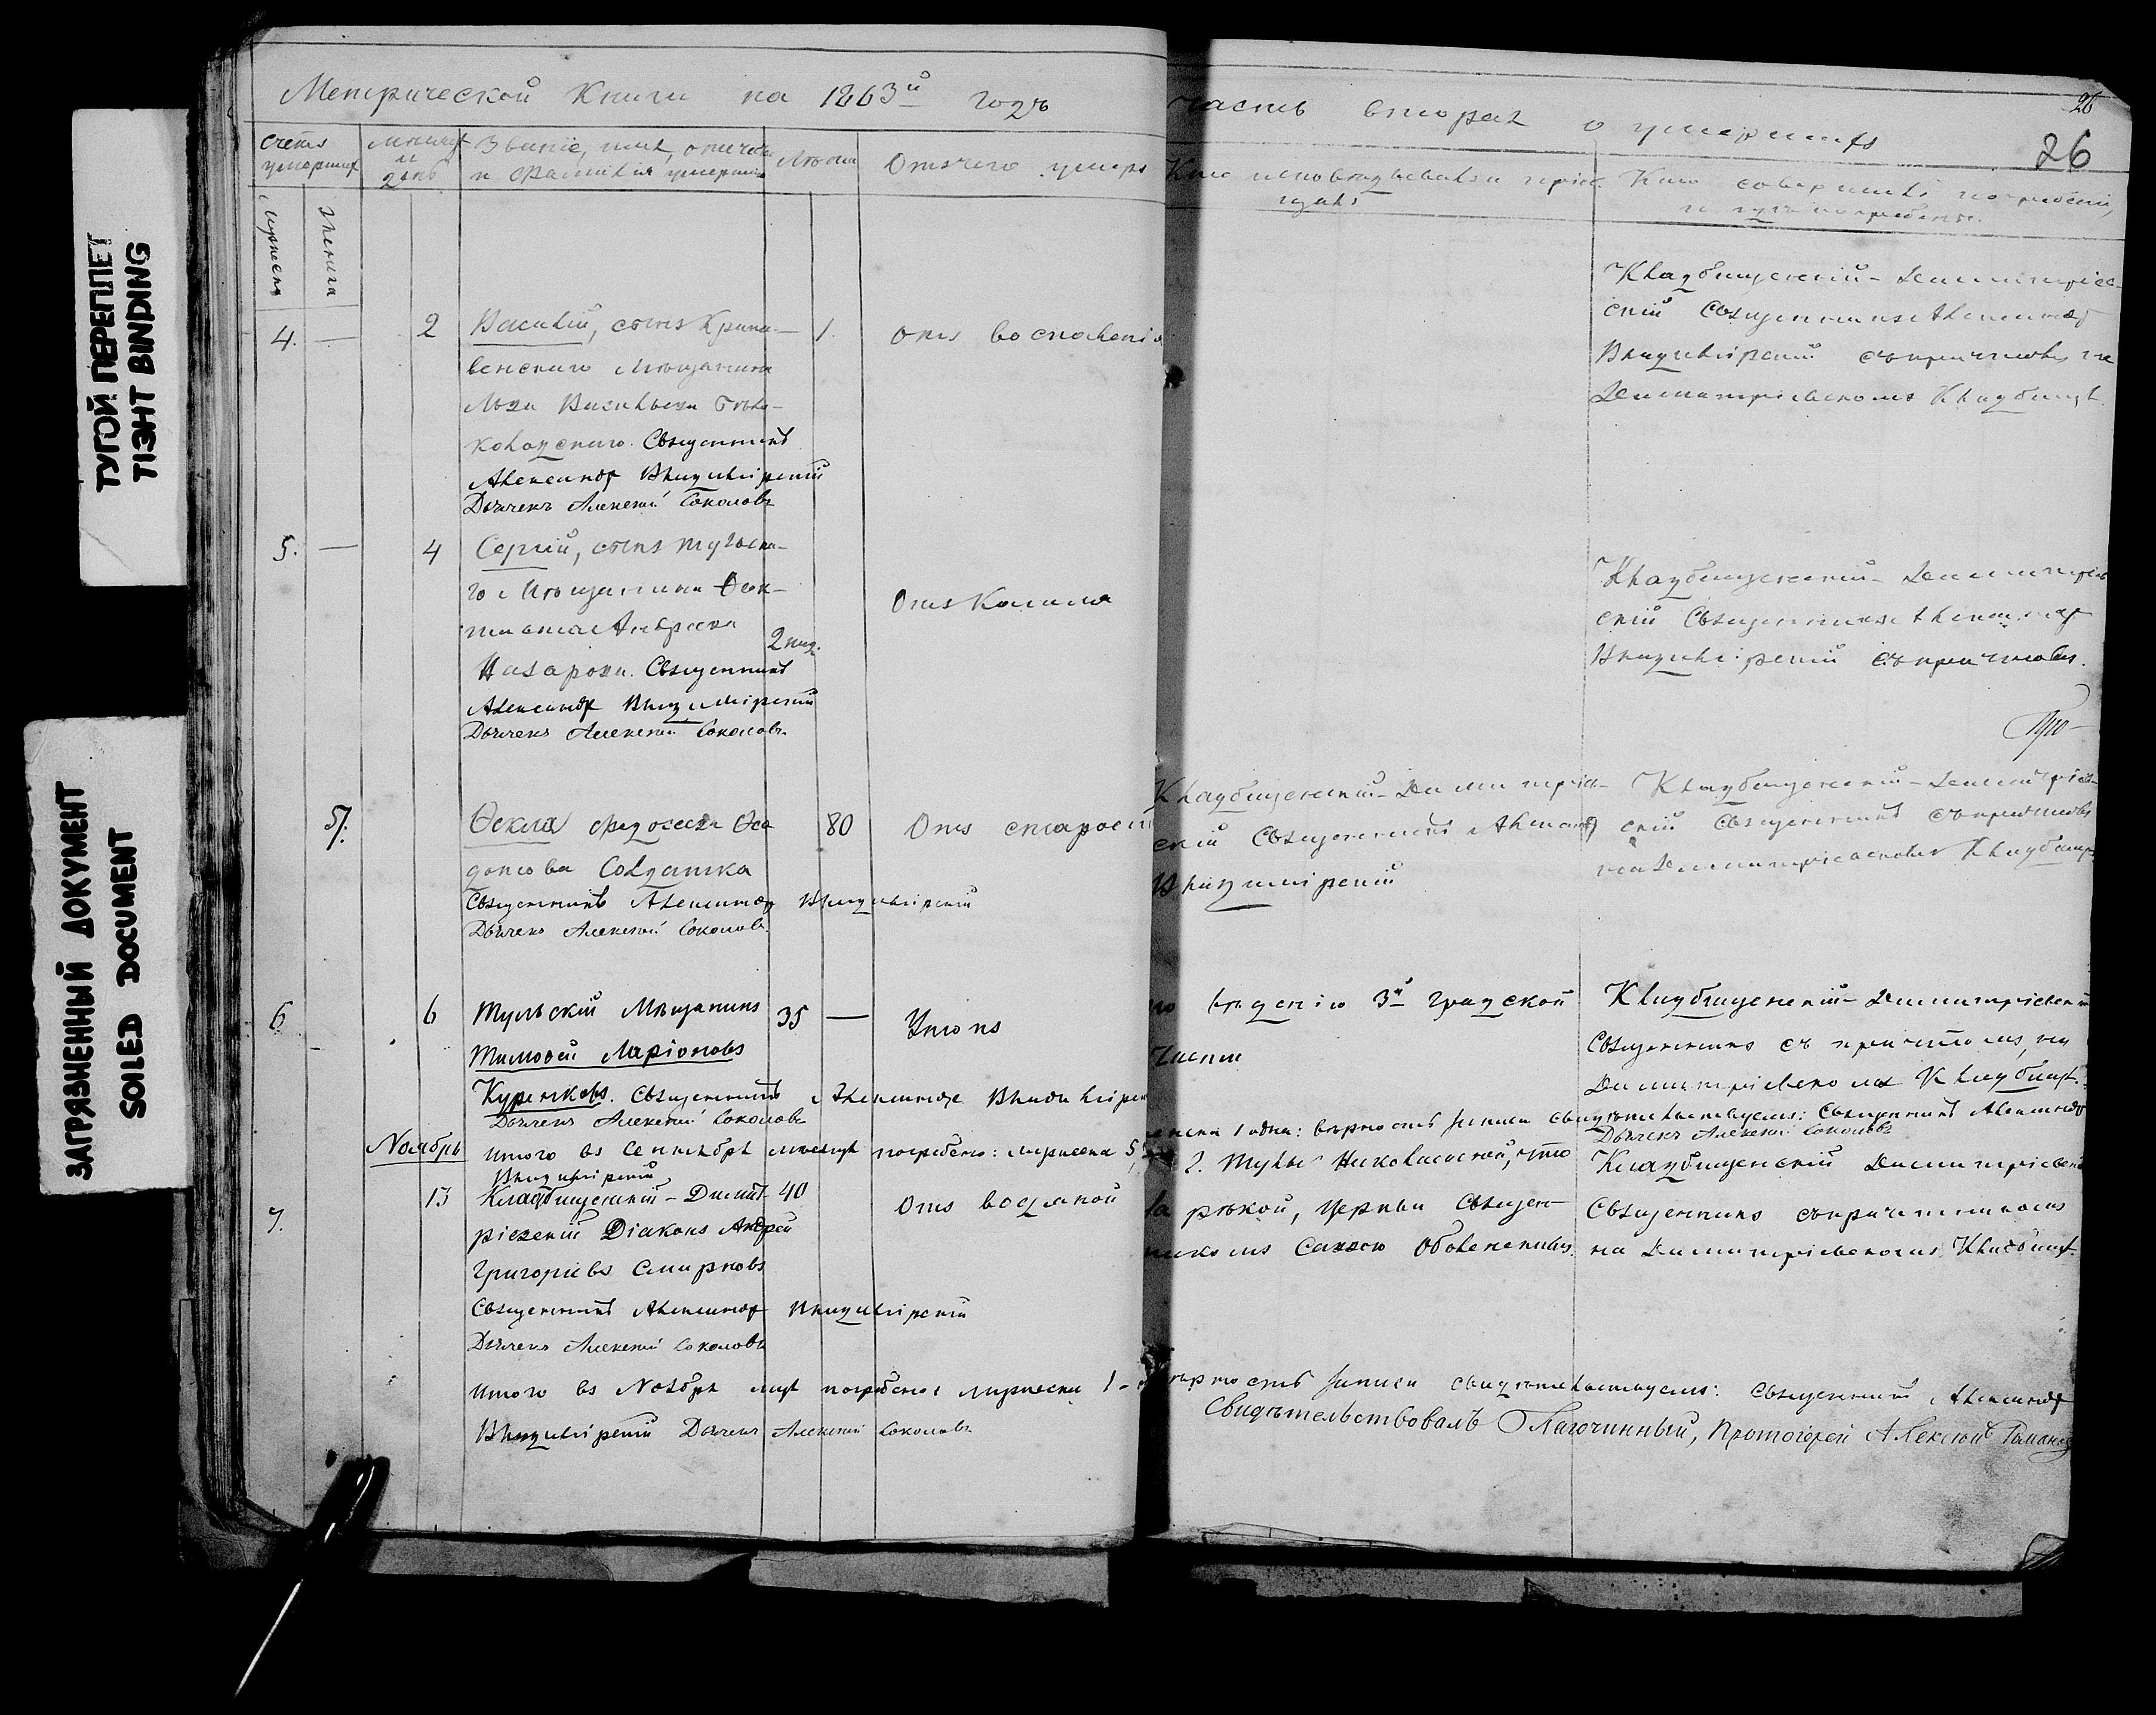 ТУГОЙ ПЕРЕПЛЕТ
TIЭHT BINDING
ЗАГРЯЗНЕННЫЙ ДОКУМЕНТ
SOILED DOCUMENT
Метрической Книги на 1863й годъ
часть вторая о умершихъ
26
26
Счетъ умершихъ
Мѣсяцъ и день
Званіе, имя, отчество и фамилія умершихъ
Лѣта
Отъ чего умеръ
Кто исповѣдывалъ и пріобщалъ
Кто совершалъ погребеніе, и гдѣ погребены.
Мужеска
Женска
4. — 2
Василій, сынъ Крапи-
венскаго Мѣщанина
Льва Васильева
Священникъ
Александръ Владимірскій
Дьячекъ Алексѣй Соколовъ
1.
отъ воспаленія
Кладбищенскій - Димитріев-
скій Священникъ Александръ
Владимірскій съ причтомъ на
Димитріевскомъ Кладбищѣ.
5. — 4
Сергій, сынъ Тульска-
го Мѣщанина
Назарова. Священникъ
Александръ Владимірскій
Дьячекъ Алексѣй Соколовъ
2 нед.
Отъ Кашля
Кладбищенскій - Димитріев-
скій Священникъ Александръ
Владимірскій съ причтомъ.
5.
Ѳекла Ѳе
дотова Солдатка
Священникъ Александръ Владимірскій
Дьячекъ Алексѣй Соколовъ
80
Отъ старости
Кладбищенскій - Димитріев-
скій Священникъ Александръ
Владимірскій
Кладбищенскій - Димитріев-
скій Священникъ съ причтомъ
на Димитріевскомъ Кладбищѣ
6 6
Тульскій Мѣщанинъ
Тимоѳей Ларіоновъ
Куренковъ. Священникъ Александръ Владимірскій
Дьячекъ Алексѣй Соколовъ
35 —
Утопъ
по вѣденію 3й градской
части
Кладбищенскій - Димитріевскій
Священникъ съ причтомъ, на
Димитріевскомъ Кладбищѣ.
Ноябрь
Итого въ Сентябрѣ мѣсяцѣ погребено: мужеска 5, женска 1 одна: вѣрность записи свидѣтельствуемъ: Священникъ Александръ
Владимірскій
Дьячекъ Алексѣй Соколовъ
7. 13
Кладбищенскій - Димит-
ріевскій Діаконъ Андрей
Григорьевъ Смирновъ
Священникъ Александръ Владимірскій
Дьячекъ Алексѣй Соколовъ
40
Отъ водяной
г. Тулы Николаевской, что
за рѣкой, Церкви Священ-
никомъ Саввою Оболенскимъ.
Кладбищенскій Димитріевскій
Священникъ съ причтомъ
на Димитріевскомъ Кладбищѣ
Итого въ Ноябрѣ м-цѣ погребено: мужеска 1 - вѣрность записи свидѣтельствуемъ: Священникъ Александръ
Владимірскій Дьячекъ Алексѣй Соколовъ
Свидѣтельствовалъ Благочинный, Протоіерей Алексій